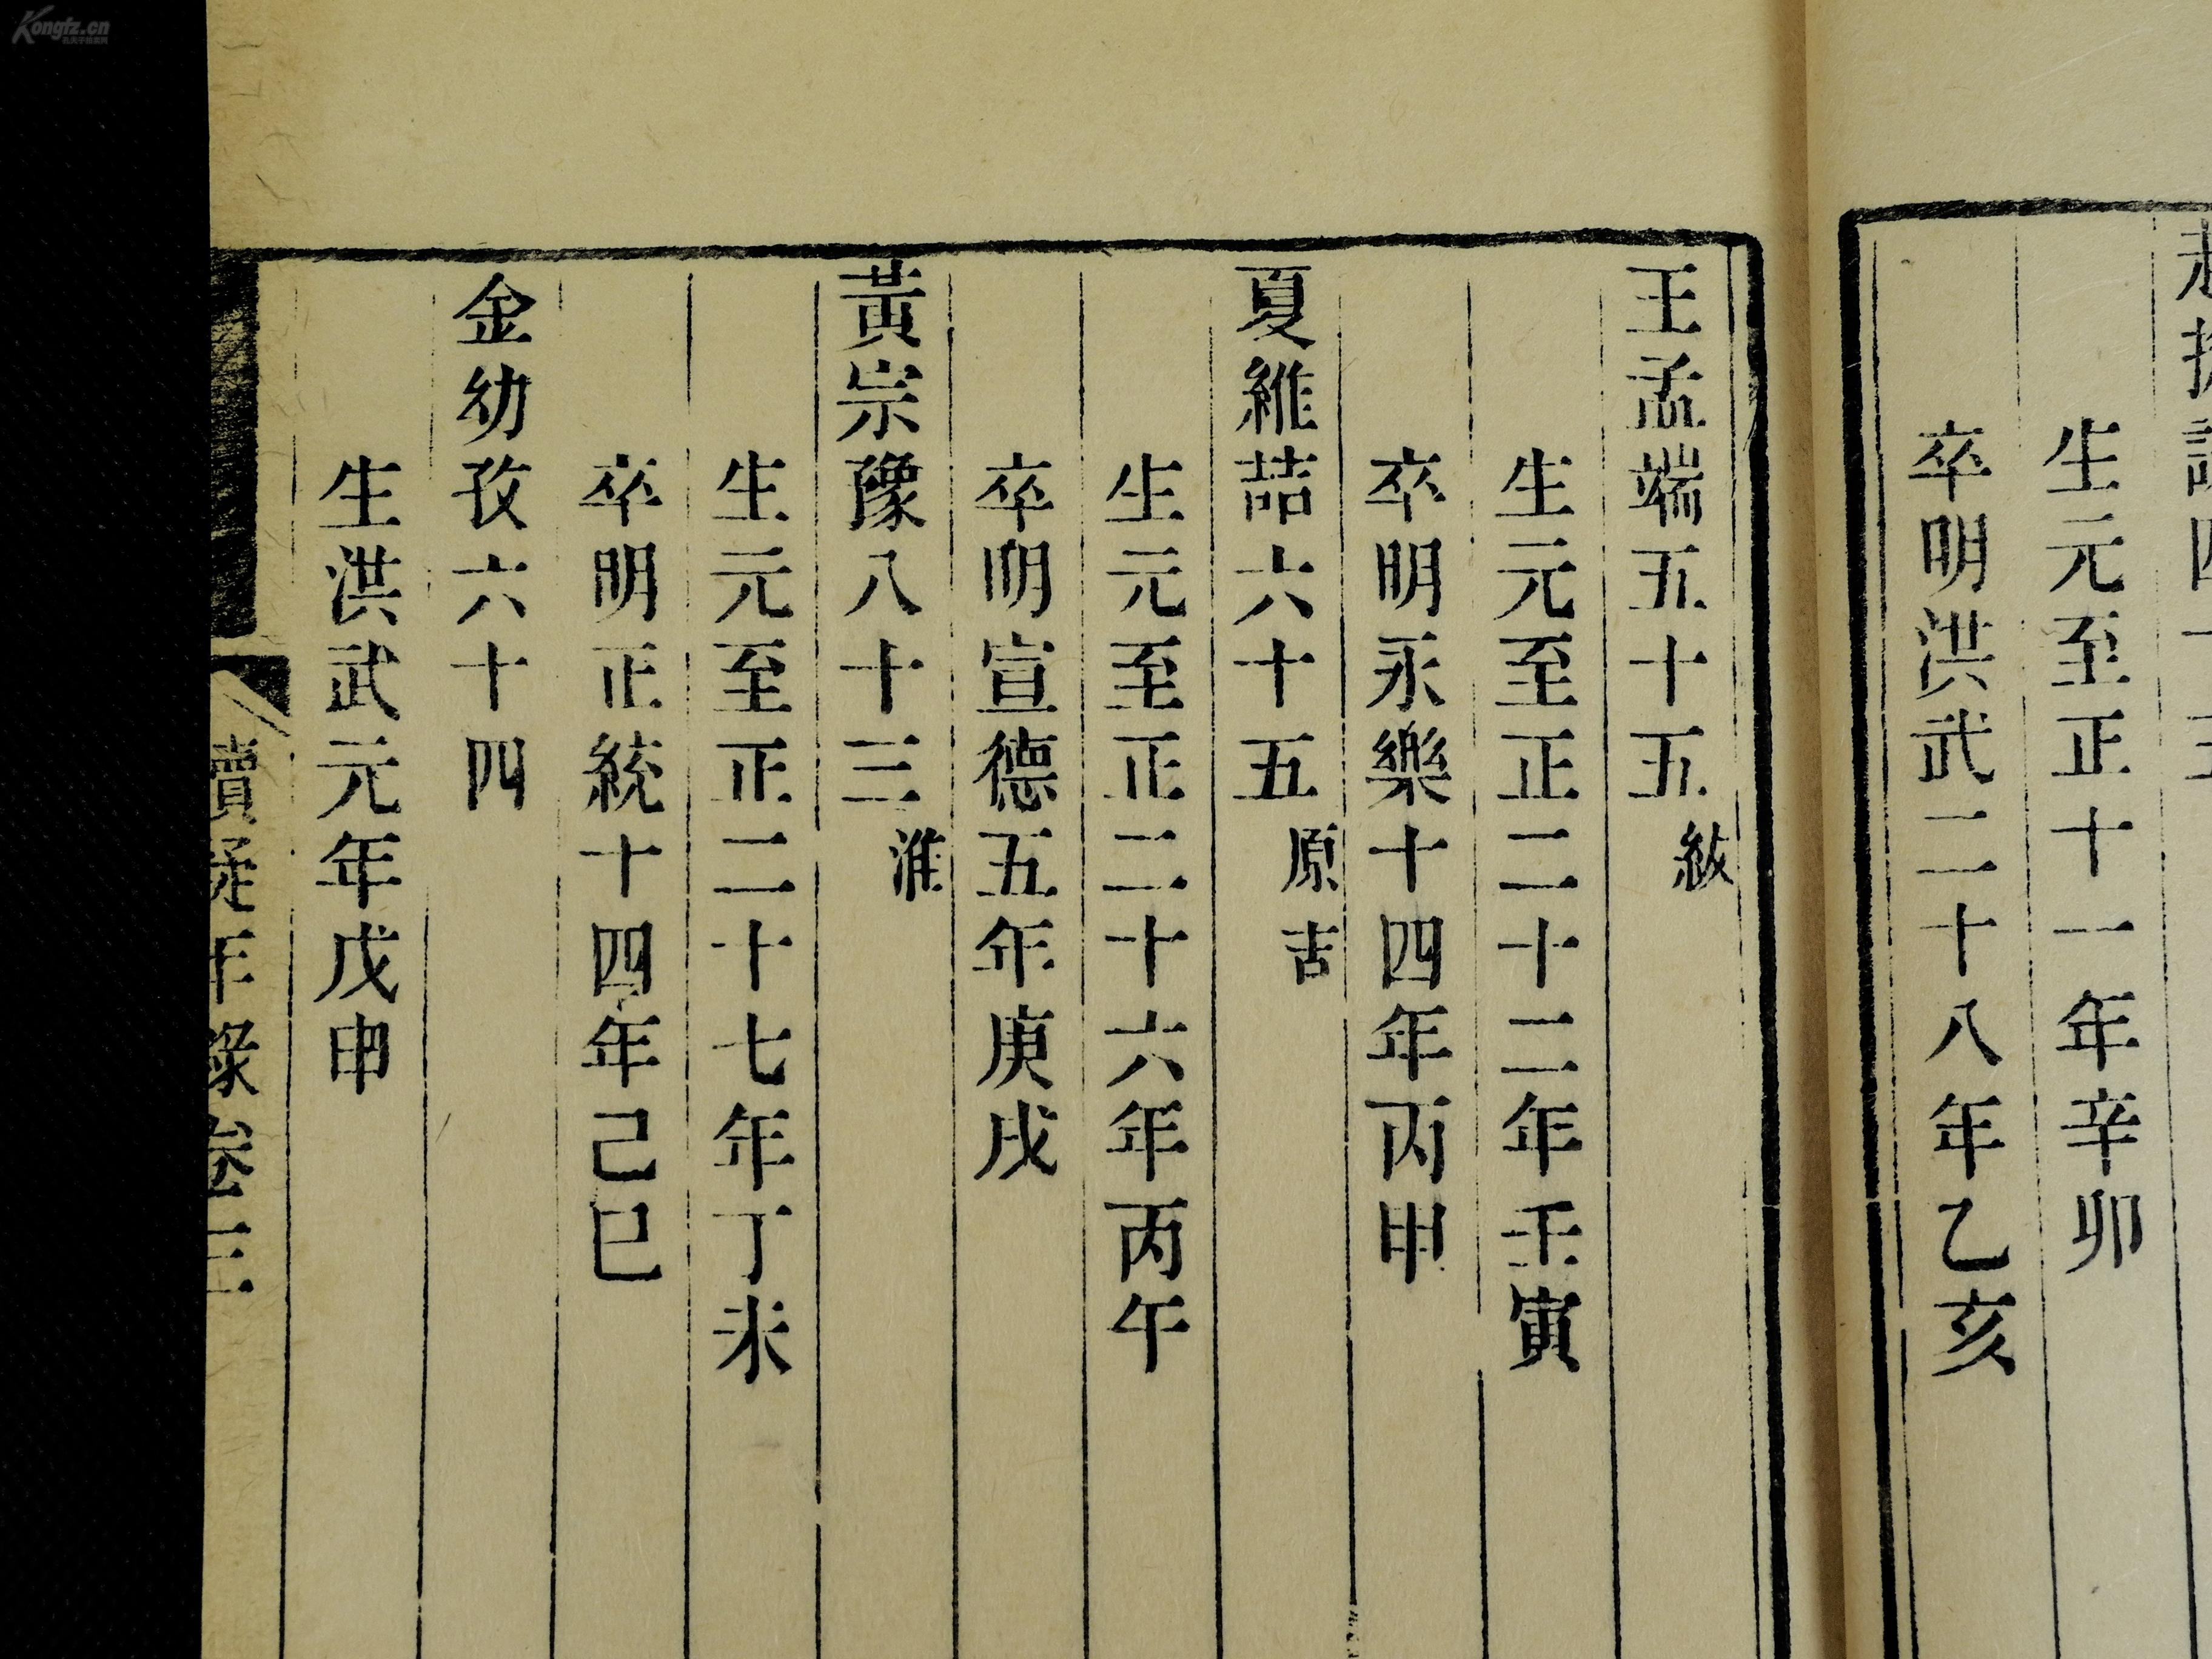 生元至正十一年辛卯
卒明洪武二十八年乙亥
王孟端五十五 紱
生元至正二十二年壬寅
卒明永樂十四年丙申
夏維喆六十五 原吉
生元至正二十六年丙午
卒明宣德五年庚戌
黃宗豫八十三 淮
生元至正二十七年丁未
卒明正統十四年己巳
金幼孜六十四
生洪武元年戊申
疑年錄卷三
Kongfz.cn